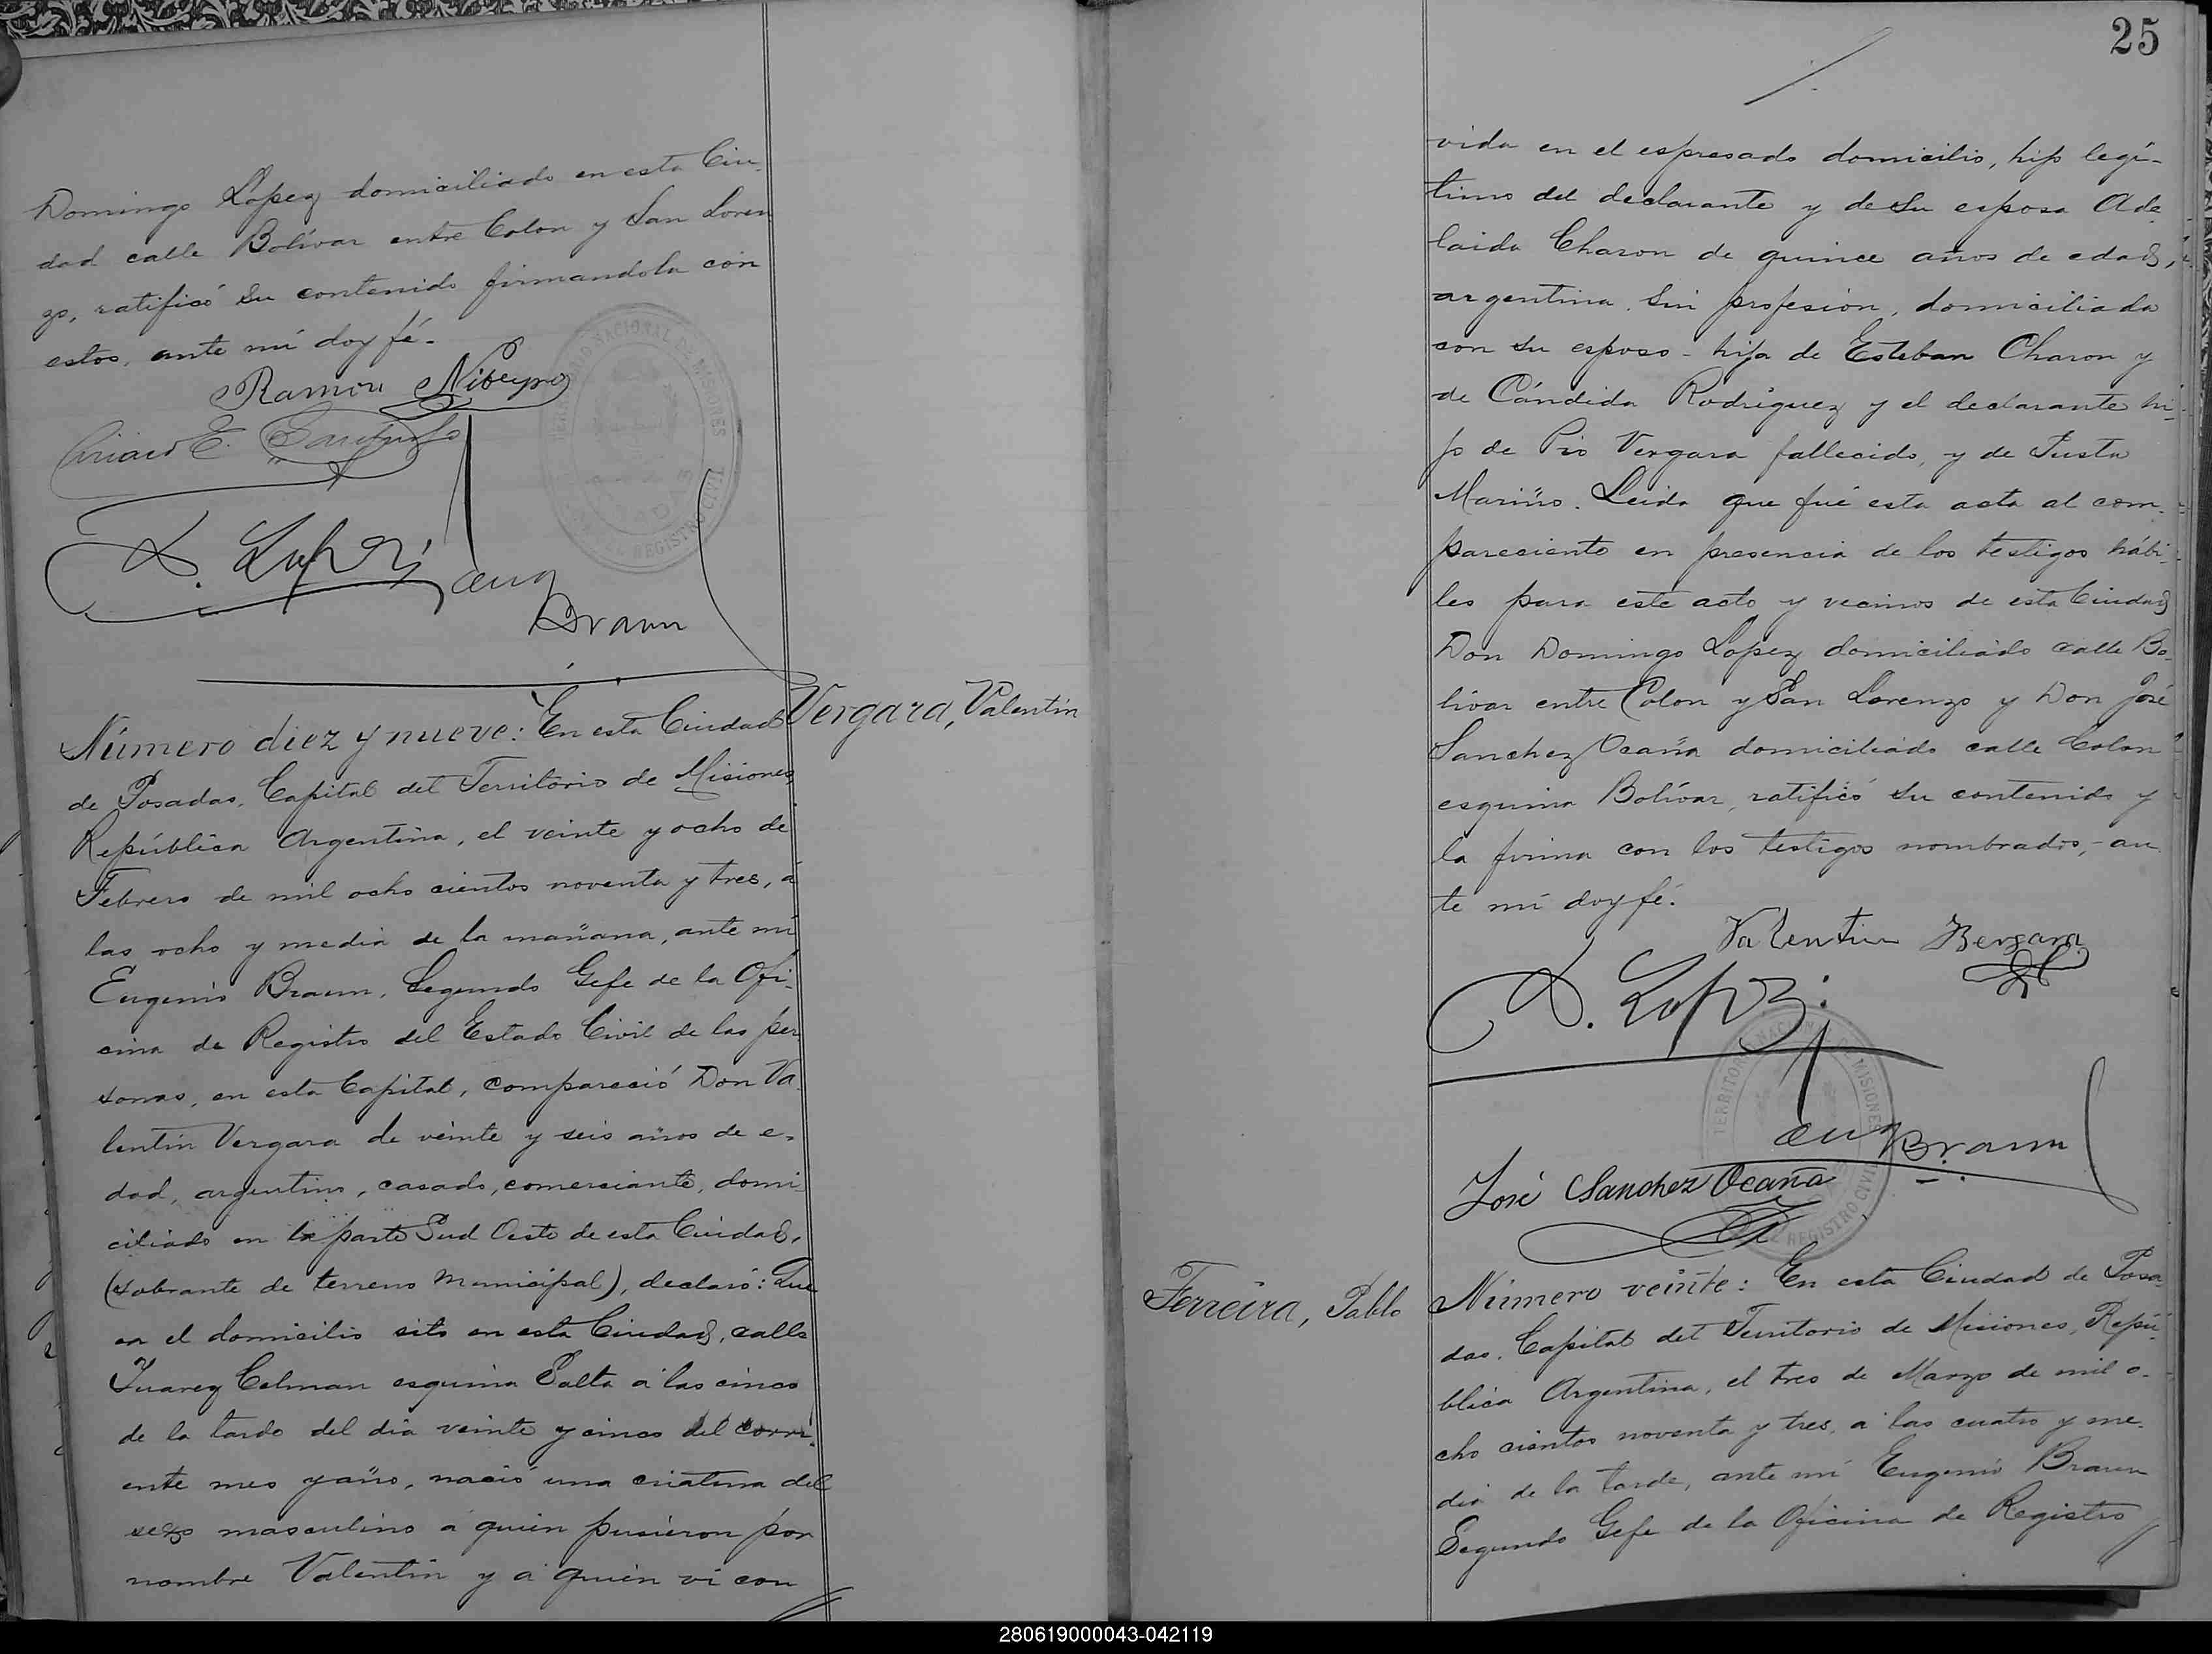 Domingo Lopez domiciliado en esta Ciu-
dad calle Bolívar entre Colon y San Loren
zo, ratificó su contenido firmandola con
estos, ante mí doy fé.
Ramón Nibeyro
Ciriaco E.
D. Lopez
Eug Braun
TERRITORIO NACIONAL DE MISIONES
REGISTRO CIVIL
Vergara, Valentín
Número diez y nueve: En esta Ciudad
de Posadas, Capital del Territorio de Misiones,
República Argentina, el veinte y ocho de
Febrero de mil ocho cientos noventa y tres, á
las ocho y media de la mañana, ante mí
Eugenio Braun, Segundo Gefe de la Ofi-
cina de Registro del Estado Civil de las per
sonas, en esta Capital, compareció Don Va-
lentín Vergara de veinte y seis años de e-
dad, argentino, casado, comerciante, domi-
ciliado en la parte Sud Oeste de esta Ciudad,
(sobrante de terreno Municipal), declaró: Que
en el domicilio sito en esta Ciudad, calle
Juarez Celman esquina Salta á las cinco
de la tarde del dia veinte y cinco del corri-
ente mes y año, nació una criatura del
sexo masculino á quien pusieron por
nombre Valentín y á quien vi con
25
vida en el espresado domicilio, hijo legí-
timo del declarante y de su esposa Ade
laida Charon de quince años de edad,
argentina, sin profesion, domiciliada
con su esposo - hija de Esteban Charon y
de Cándida Rodriguez y el declarante hi-
jo de Pio Vergara fallecido, y de Justa
Mariño. Leida que fué esta acta al com-
pareciente en presencia de los testigos hábi-
les para este acto y vecinos de esta Ciudad
Don Domingo Lopez domiciliado calle Bo-
lívar entre Colon y San Lorenzo y Don José
Sanchez Ocaña domiciliado calle Colon
esquina Bolívar, ratificó su contenido y
la firma con los testigos nombrados, - an
te mí doy fé.
Valentin Bergara
D. Lopez
TERRITORIO NACIONAL DE MISIONES
REGISTRO CIVIL
Eug Braun
José Sanchez Ocaña
Ferreira, Pablo
Número veinte: En esta Ciudad de Posa-
das, Capital del Territorio de Misiones, Repú-
blica Argentina, el tres de Marzo de mil o-
cho cientos noventa y tres, á las cuatro y me-
dia de la tarde, ante mí Eugenio Braun
Segundo Gefe de la Oficina de Registro
280619000043-042119